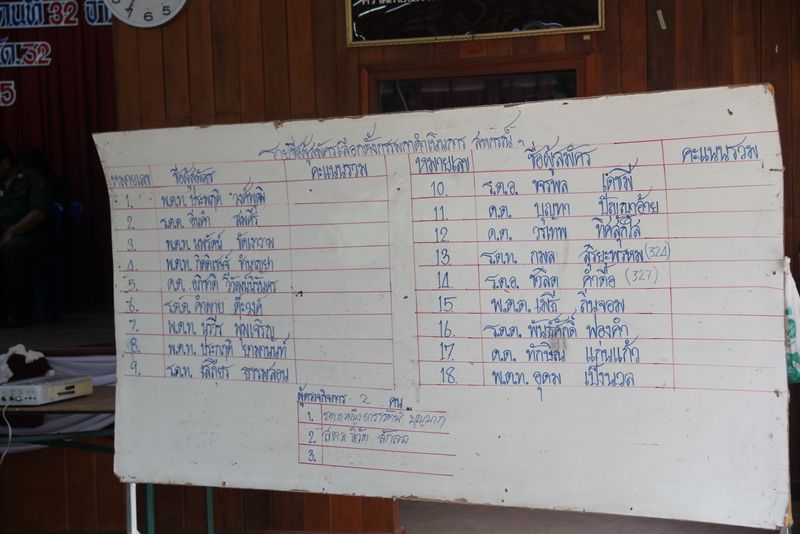 32
ด.32
5
รายชื่อผู้สมัครเลือกตั้งกรรมการดำเนินการ สหกรณ์ฯ
หมายเลข ชื่อผู้สมัคร คะแนนรวม
1. พ.ต.ท. ประพฤติ วงศ์พุฒิ
2. ร.ต.ต. อินคำ สมศรี
3. พ.ต.ท. นพรัตน์ ขัดเงางาม
4. พ.ต.ท. กิตติเชษฐ์ ชำนาญยา
5. ด.ต. อภิชาติ วิวัฒน์นิรันดร
6. ร.ต.ต. คำพาย ต๊ะวงค์
7. พ.ต.ท. พูมเจริญ
8. พ.ต.ท. ประกฤติ ยามานนท์
9. ร.ต.ท. เสถียร ธรรมสอน
หมายเลข ชื่อผู้สมัคร คะแนนรวม
10. ร.ต.อ. ขจรพล เดชมี
11. ด.ต. บุญทา ปัญญาอ้าย
12. ด.ต. วรเทพ ทิศสุกใส
13. ร.ต.ท. กมล สุริยะพรหม (324)
14. ร.ต.อ. ชวลิต คำตื้อ (327)
15. พ.ต.ต. ถิ่นจอม
16. ร.ต.ต. พันธ์ศักดิ์ ฟองคำ
17. ด.ต. ทักษิณ แก่นแก้ว
18. พ.ต.ท. อุดม เป็งนวล
ผู้ตรวจกิจการ 2 คน
1. บุญมาภ
2.
3.